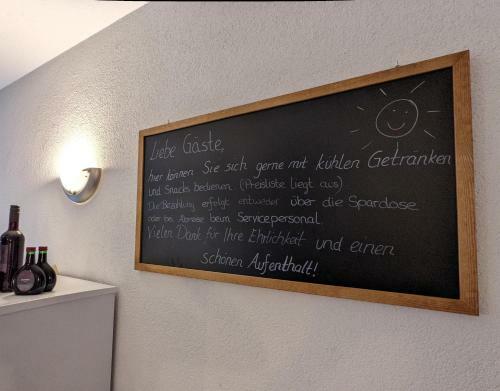 Liebe Gäste,
hier können Sie sich gerne mit kühlen Getränken
und Snacks bedienen (Preisliste liegt aus)
Die Bezahlung erfolgt entweder über die Spardose
oder bei Abreise beim Servicepersonal.
Vielen Dank für Ihre Ehrlichkeit und einen
schönen Aufenthalt!